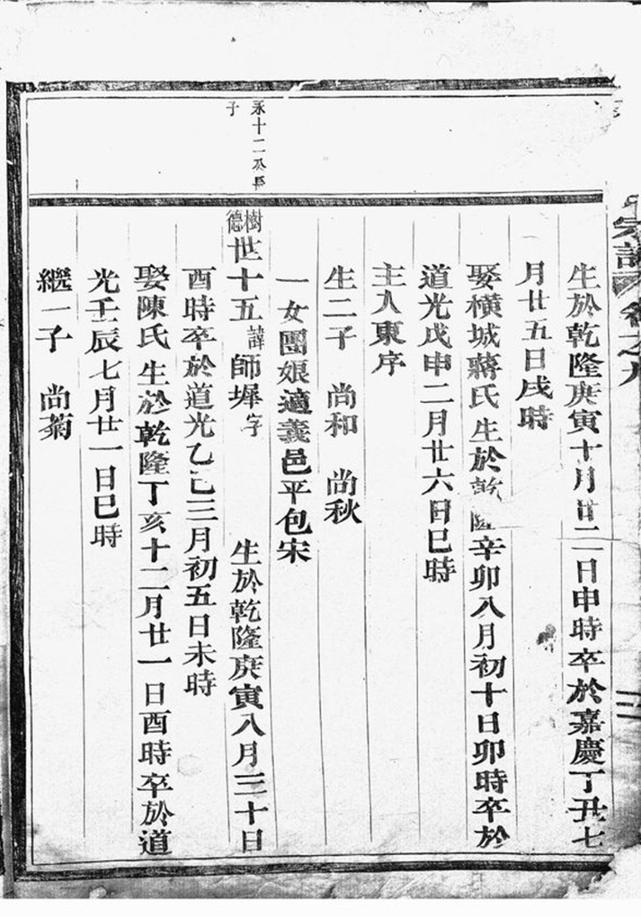 宗譜 卷之九
生於乾隆庚寅十月廿二日申時卒於嘉慶丁丑七
月廿五日戌時
娶橫城蔣氏生於乾隆辛卯八月初十日卯時卒於
道光戊申二月廿六日巳時
主人東序
生二子 尚和 尚秋
一女團娘適義邑平包宋
永十二公
子
樹德
世十五 諱師墀字 生於乾隆庚寅八月三十日
酉時卒於道光乙巳三月初五日未時
娶陳氏生於乾隆丁亥十二月廿一日酉時卒於道
光壬辰七月廿一日巳時
繼一子 尚菊